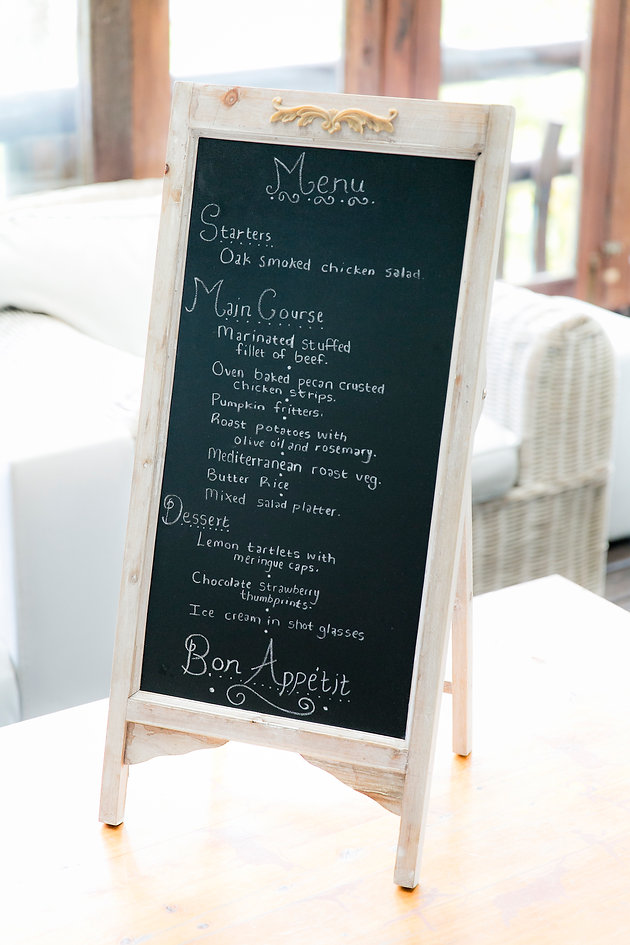 Menu
Starters
Oak smoked chicken salad.
Main Course
Marinated stuffed
fillet of beef.
Oven baked pecan crusted
chicken strips.
Pumpkin fritters.
Roast potatoes with
olive oil and rosemary.
Mediterranean roast veg.
Butter Rice
Mixed salad platter.
Dessert
Lemon tartlets with
meringue caps.
Chocolate strawberry
thumbprints.
Ice cream in shot glasses
Bon Appétit